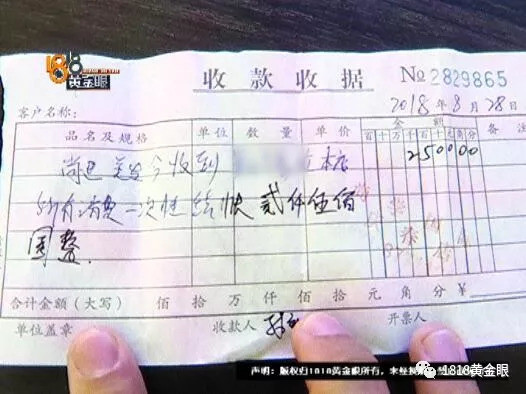 1818
黄金眼
收款收据 № 2829865
2018年8月28日
客户名称:
品名及规格 单位 数量 单价 金额 备注
百 十 万 千 百 十 元 角 分
今收到 本店 250000
所有消费一次性结账 贰仟伍佰
圆整.
合计金额(大写) 佰 拾 万 仟 佰 拾 元 角 分 ¥
单位盖章 收款人 开票人
声明:版权归1818黄金眼所有,未经
1818黄金眼